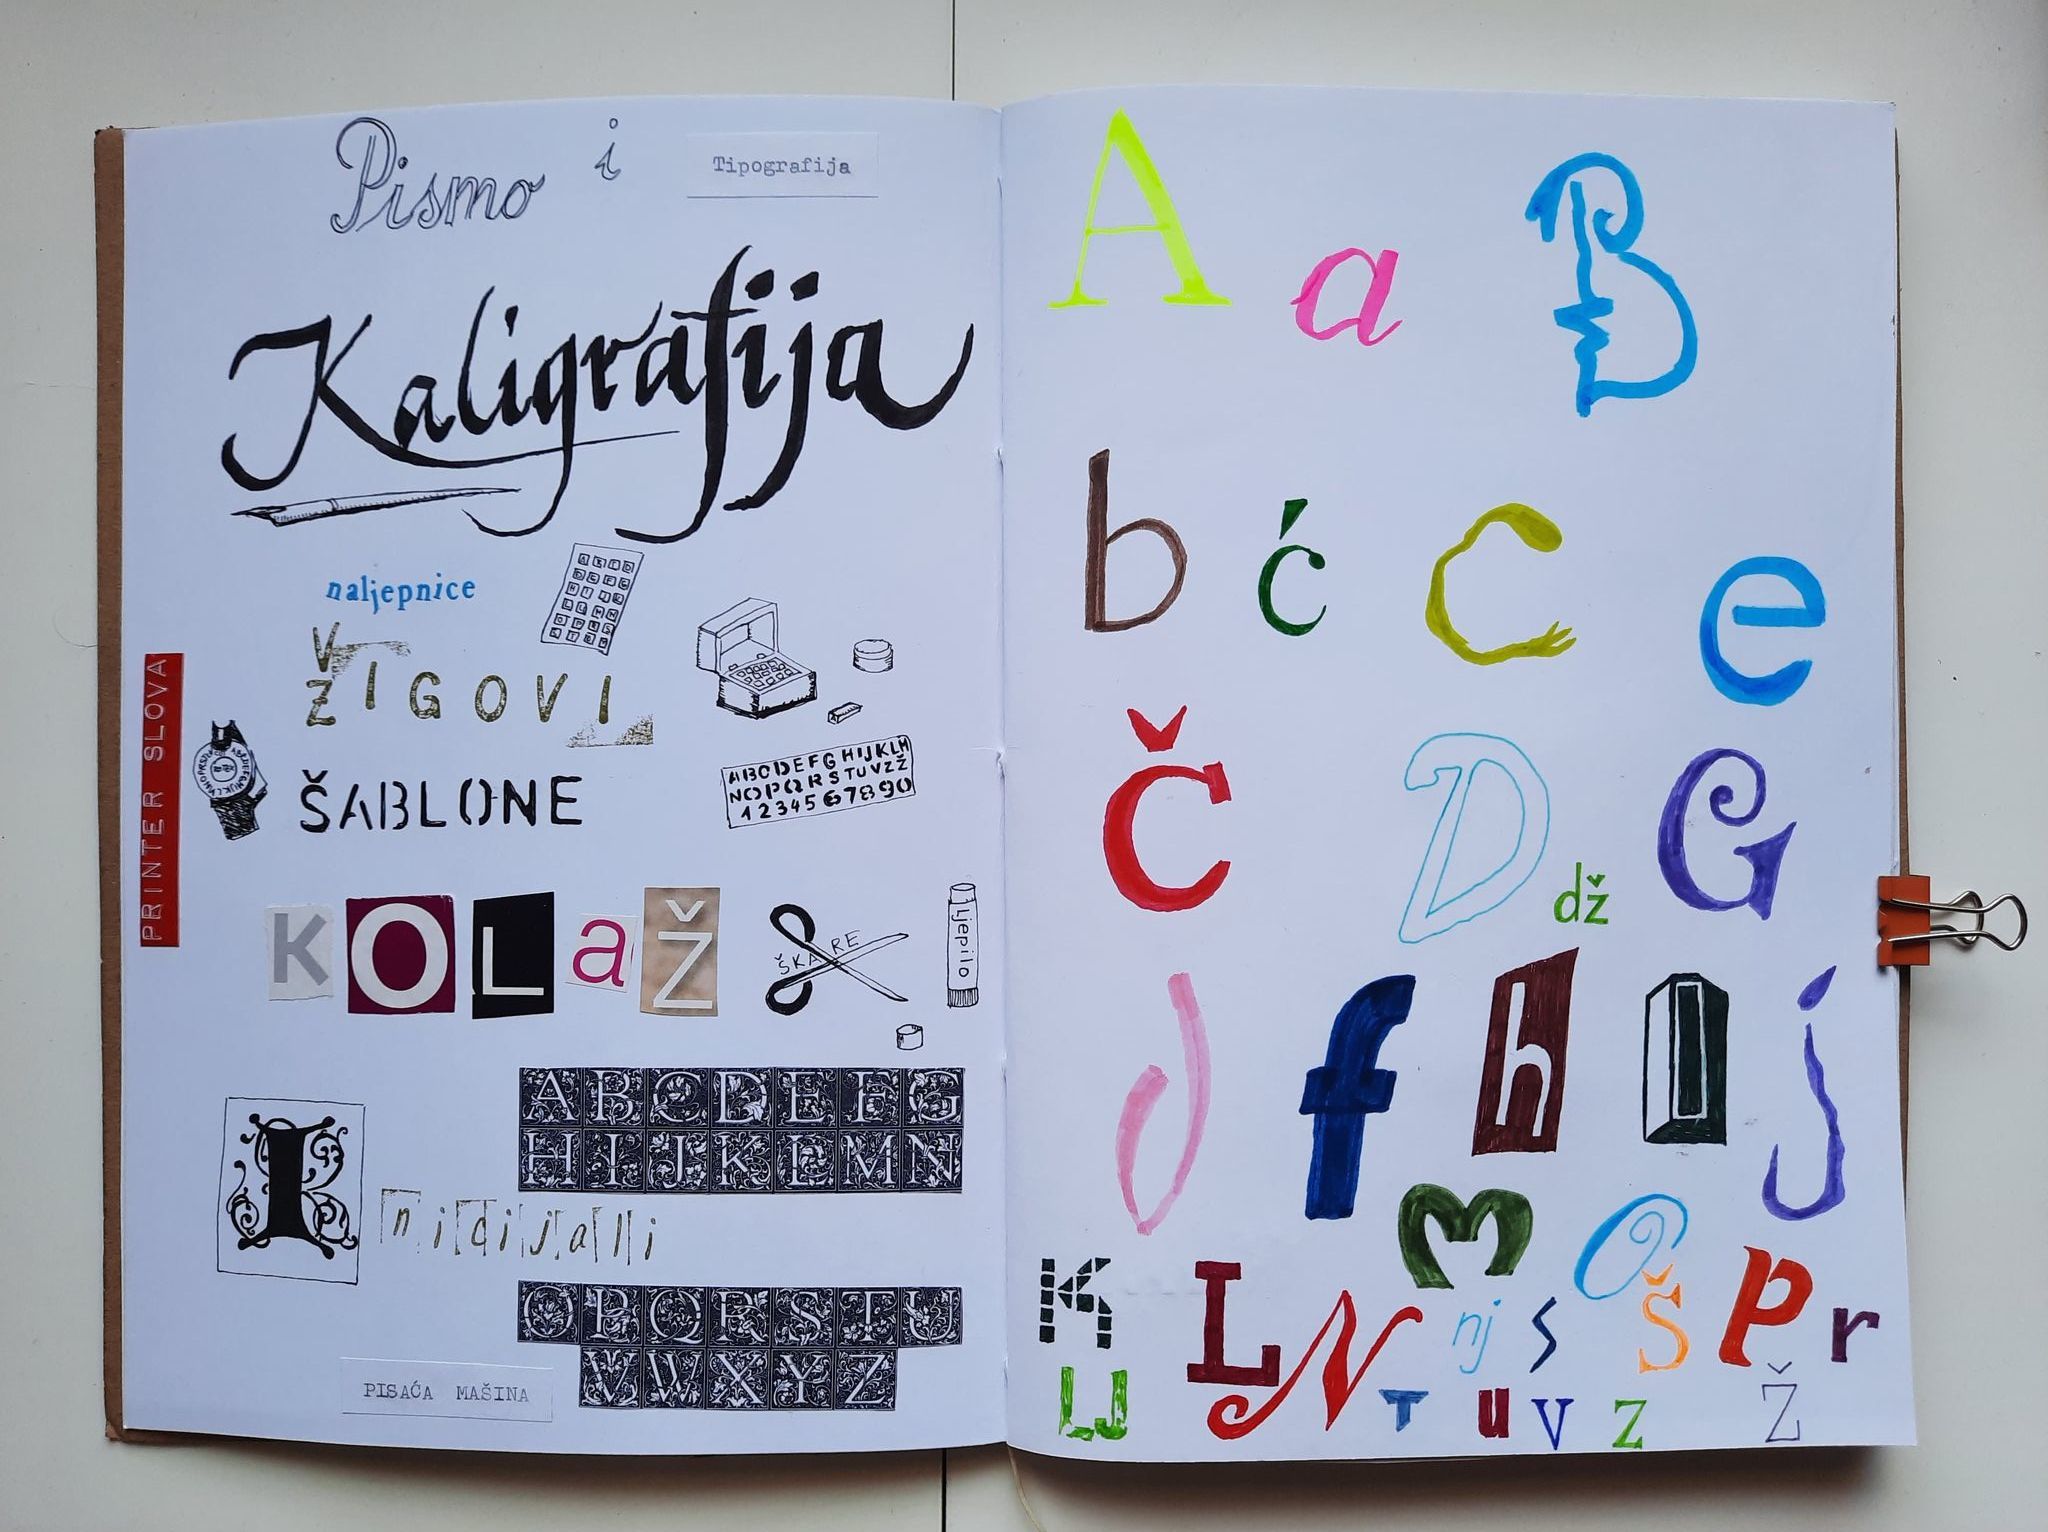 Pismo i Tipografija
Kaligrafija
naljepnice
ŽIGOVI
PRINTER SLOVA
ŠABLONE
ABCDEFGHIJKLM
NOPQRSTUVZŽ
1234567890
KOLaŽ
ŠKARE
Ljepilo
ABCDEFG
HIJKLMN
Inicijali
OPQRSTU
VWXYZ
PISAĆA MAŠINA
A a B
b ć C e
Č D dž G
J f h I j
M O
K L N nj s Š P r
LJ T u V Z Ž